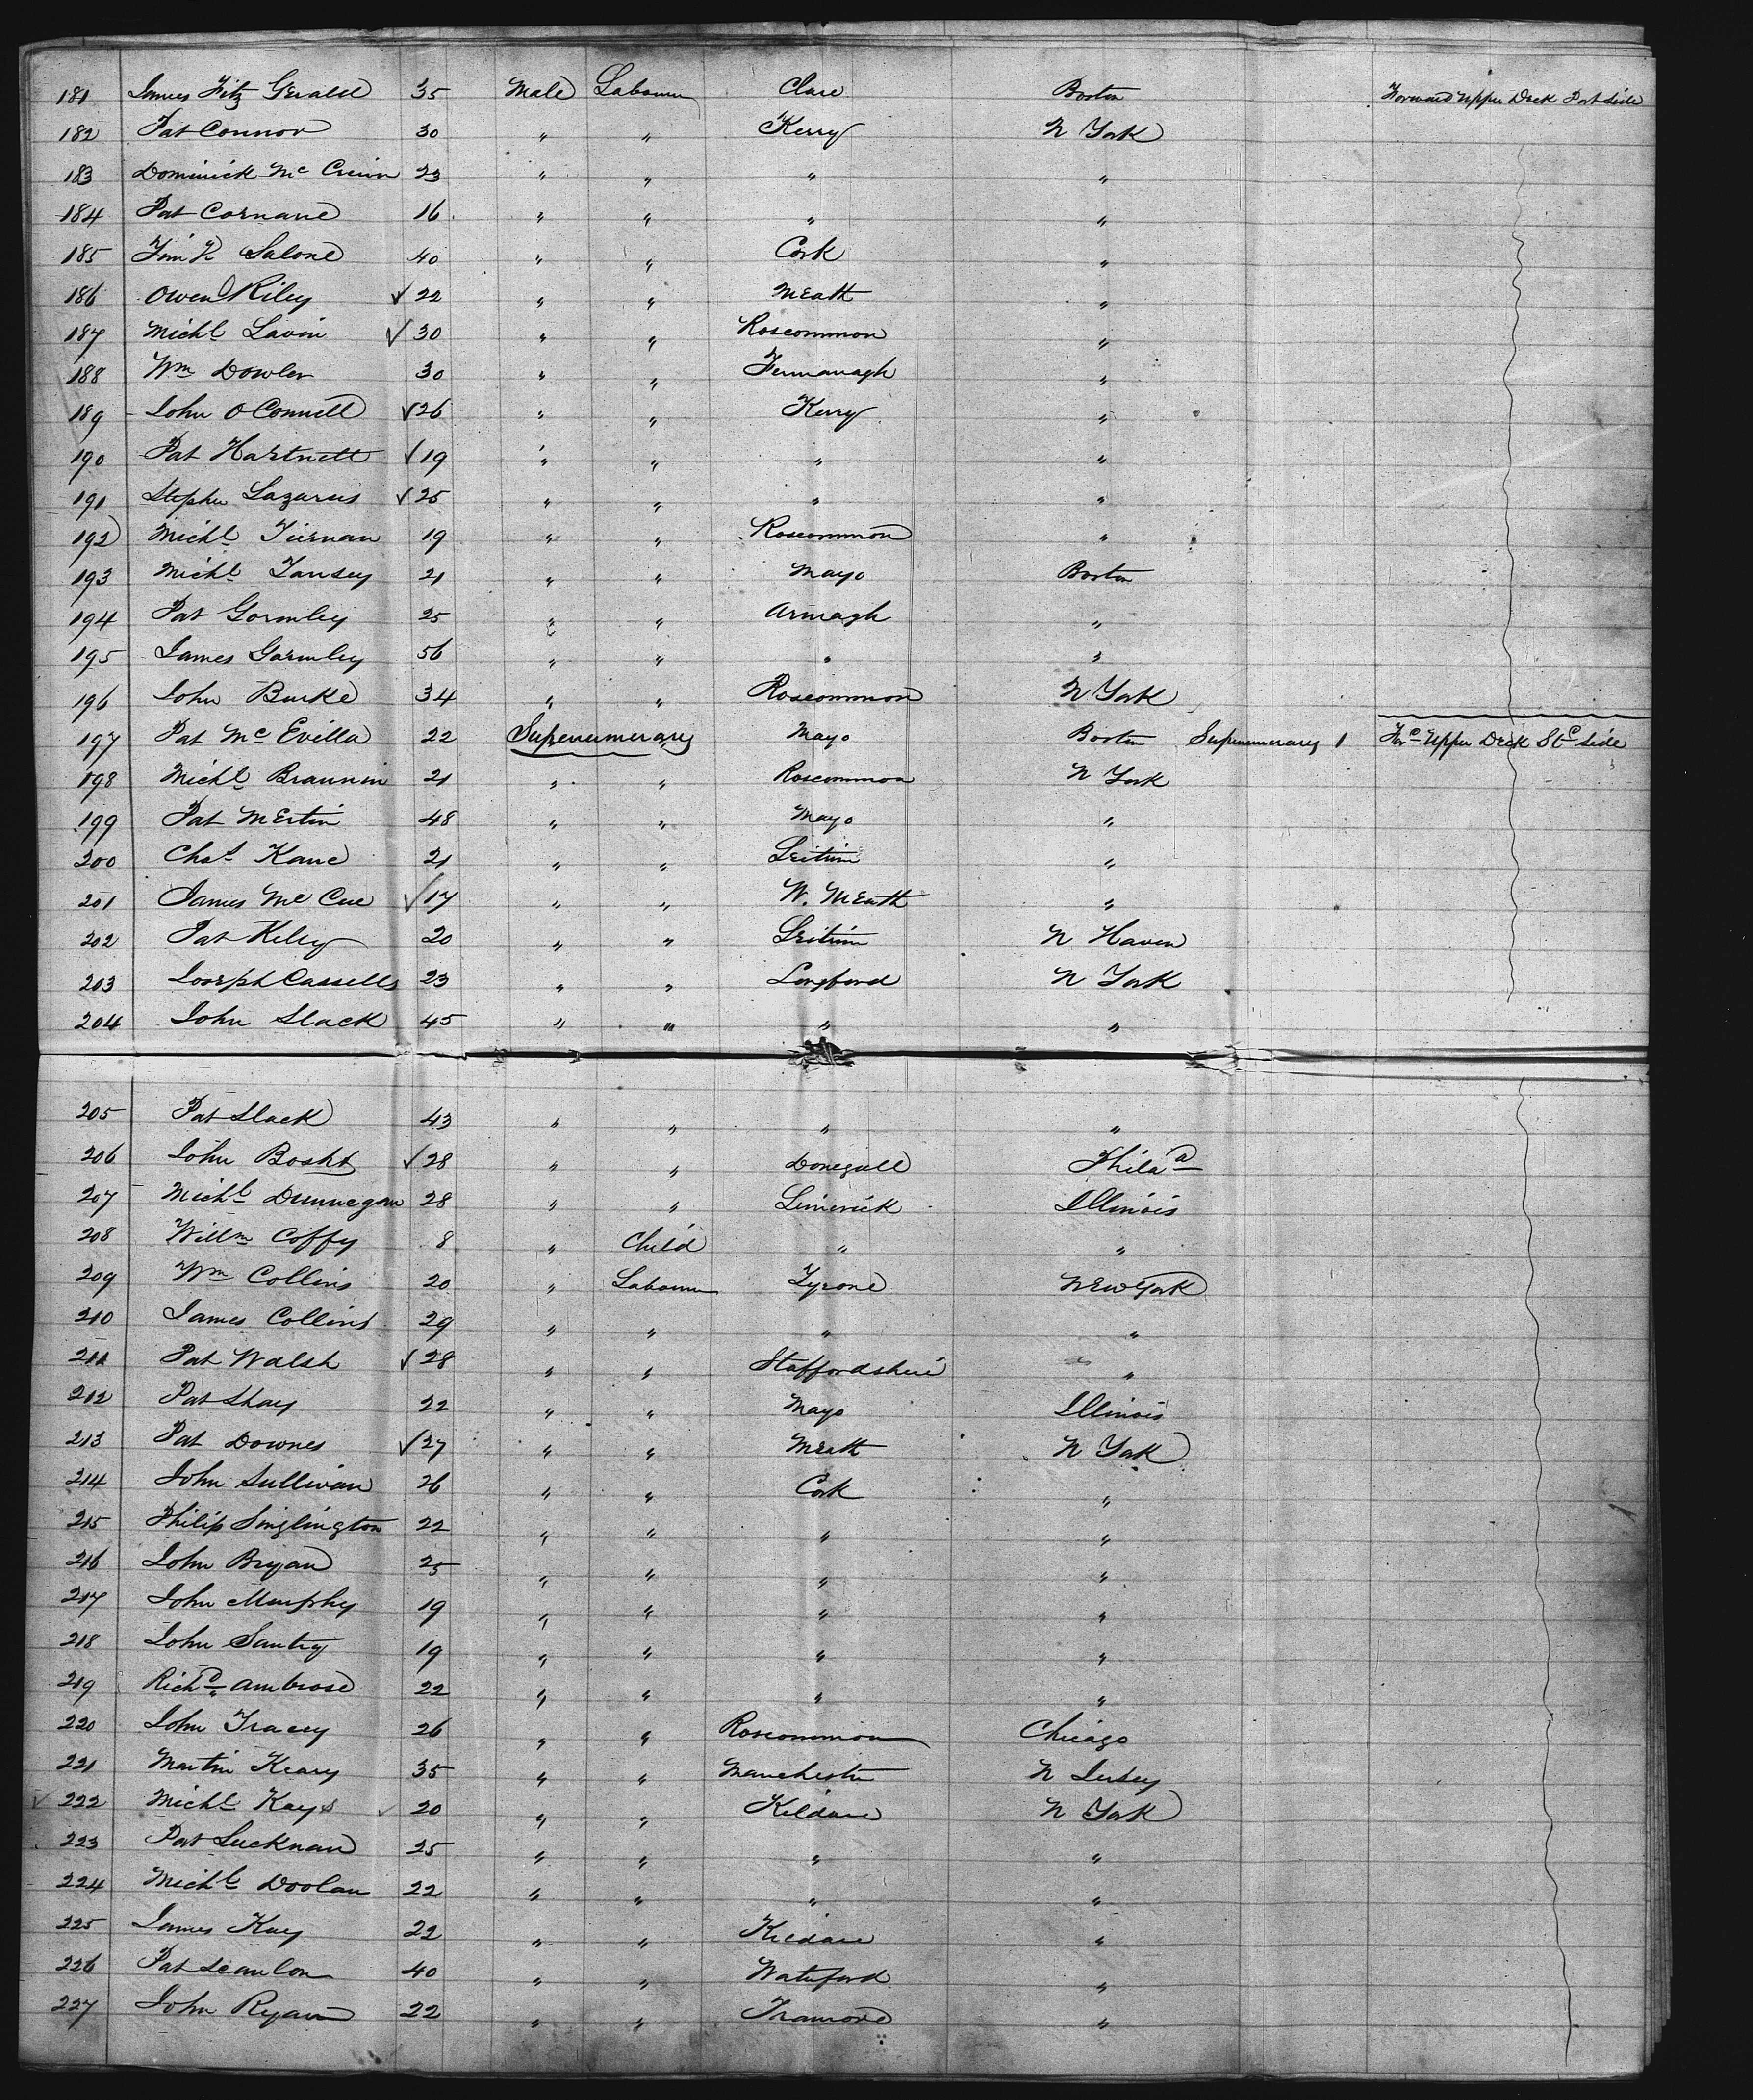 181 James Fitz Gerald 35 Male Labourer Clare Boston Forward Upper Deck Port Side
182 Pat Connor 30 " " Kerry N York
183 Dominick Mc Crinn 23 " " " "
184 Pat Cornane 16 " " " "
185 Salone 40 " " Cork "
186 Owen Riley √ 22 " " Meath "
187 Michl Lavin √ 30 " " Roscommon "
188 Wm Dowler 30 " " Fermanagh "
189 John O Connell √ 26 " " Kerry "
190 Pat Hartnett √ 19 " " " "
191 Stephen Lazarus √ 25 " " " "
192 Michl Tiernan 19 " " Roscommon "
193 Michl Tansey 21 " " Mayo Boston
194 Pat Gormley 25 " " Armagh "
195 James Gormley 56 " " " "
196 John Burke 34 " " Roscommon N York
197 Pat Mc Evilla 22 Supernumerary Mayo Boston Supernumerary 1 For Upper Deck Std Side
198 Michl Brannin 21 " " Roscommon N York
199 Pat Mertin 48 " " Mayo "
200 Chas Kane 21 " " Leitrim "
201 James Mc Cue √ 17 " " W. Meath "
202 Pat Kelly 20 " " Leitrim N Haven
203 Joseph Cassells 23 " " Longford N York
204 John Slack 45 " " " "
205 Pat Slack 43 " " " "
206 John Bosht √ 28 " " Donegall Phila a
207 Michl Dunnegan 28 " " Limerick Illinois
208 Willm Coffy 8 " Child " "
209 Wm Collins 20 " Labourer Tyrone New York
210 James Collins 29 " " " "
211 Pat Walsh √ 28 " " Staffordshire "
212 Pat Shay 22 " " Mayo Illinois
213 Pat Downes √ 27 " " Meath N York
214 John Sullivan 26 " " Cork "
215 Philip Singlington 22 " " " "
216 John Bryan 25 " " " "
217 John Murphy 19 " " " "
218 John Santry 19 " " " "
219 Richd Ambrose 22 " " " "
220 John Tracey 26 " " Roscommon Chicago
221 Martin Keary 35 " " Manchester N Jersey
√ 222 Michl Kays √ 20 " " Kildare N York
223 Pat Lucknan 25 " " " "
224 Michl Doolan 22 " " " "
225 James Kay 22 " " Kildare "
226 Pat Scanlon 40 " " Waterford "
227 John Ryan 22 " " Tramore "